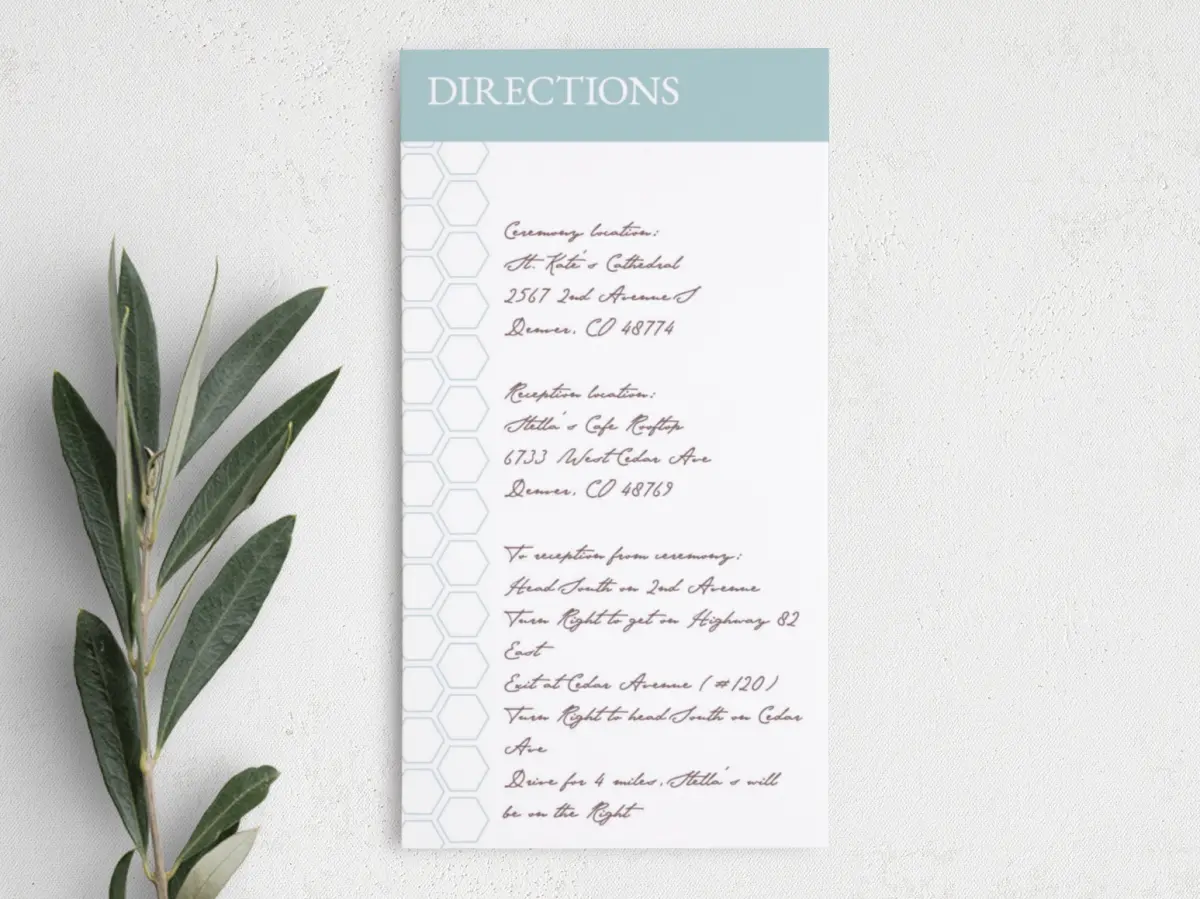 DIRECTIONS
Ceremony location:
St. Kate's Cathedral
2567 2nd Avenue S
Denver, CO 48774
Reception location:
Stella's Cafe Rooftop
6733 West Cedar Ave
Denver, CO 48769
To reception from ceremony:
Head South on 2nd Avenue
Turn Right to get on Highway 82
East
Exit at Cedar Avenue (#120)
Turn Right to head South on Cedar
Ave
Drive for 4 miles, Stella's will
be on the Right